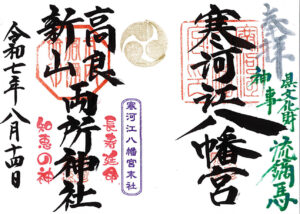 奉拝
県文化財
神事 流鏑馬
寒河江八幡宮
寒河江八幡宮末社
長寿延命
高良
新山 両所神社
知恵の神
令和七年八月十四日